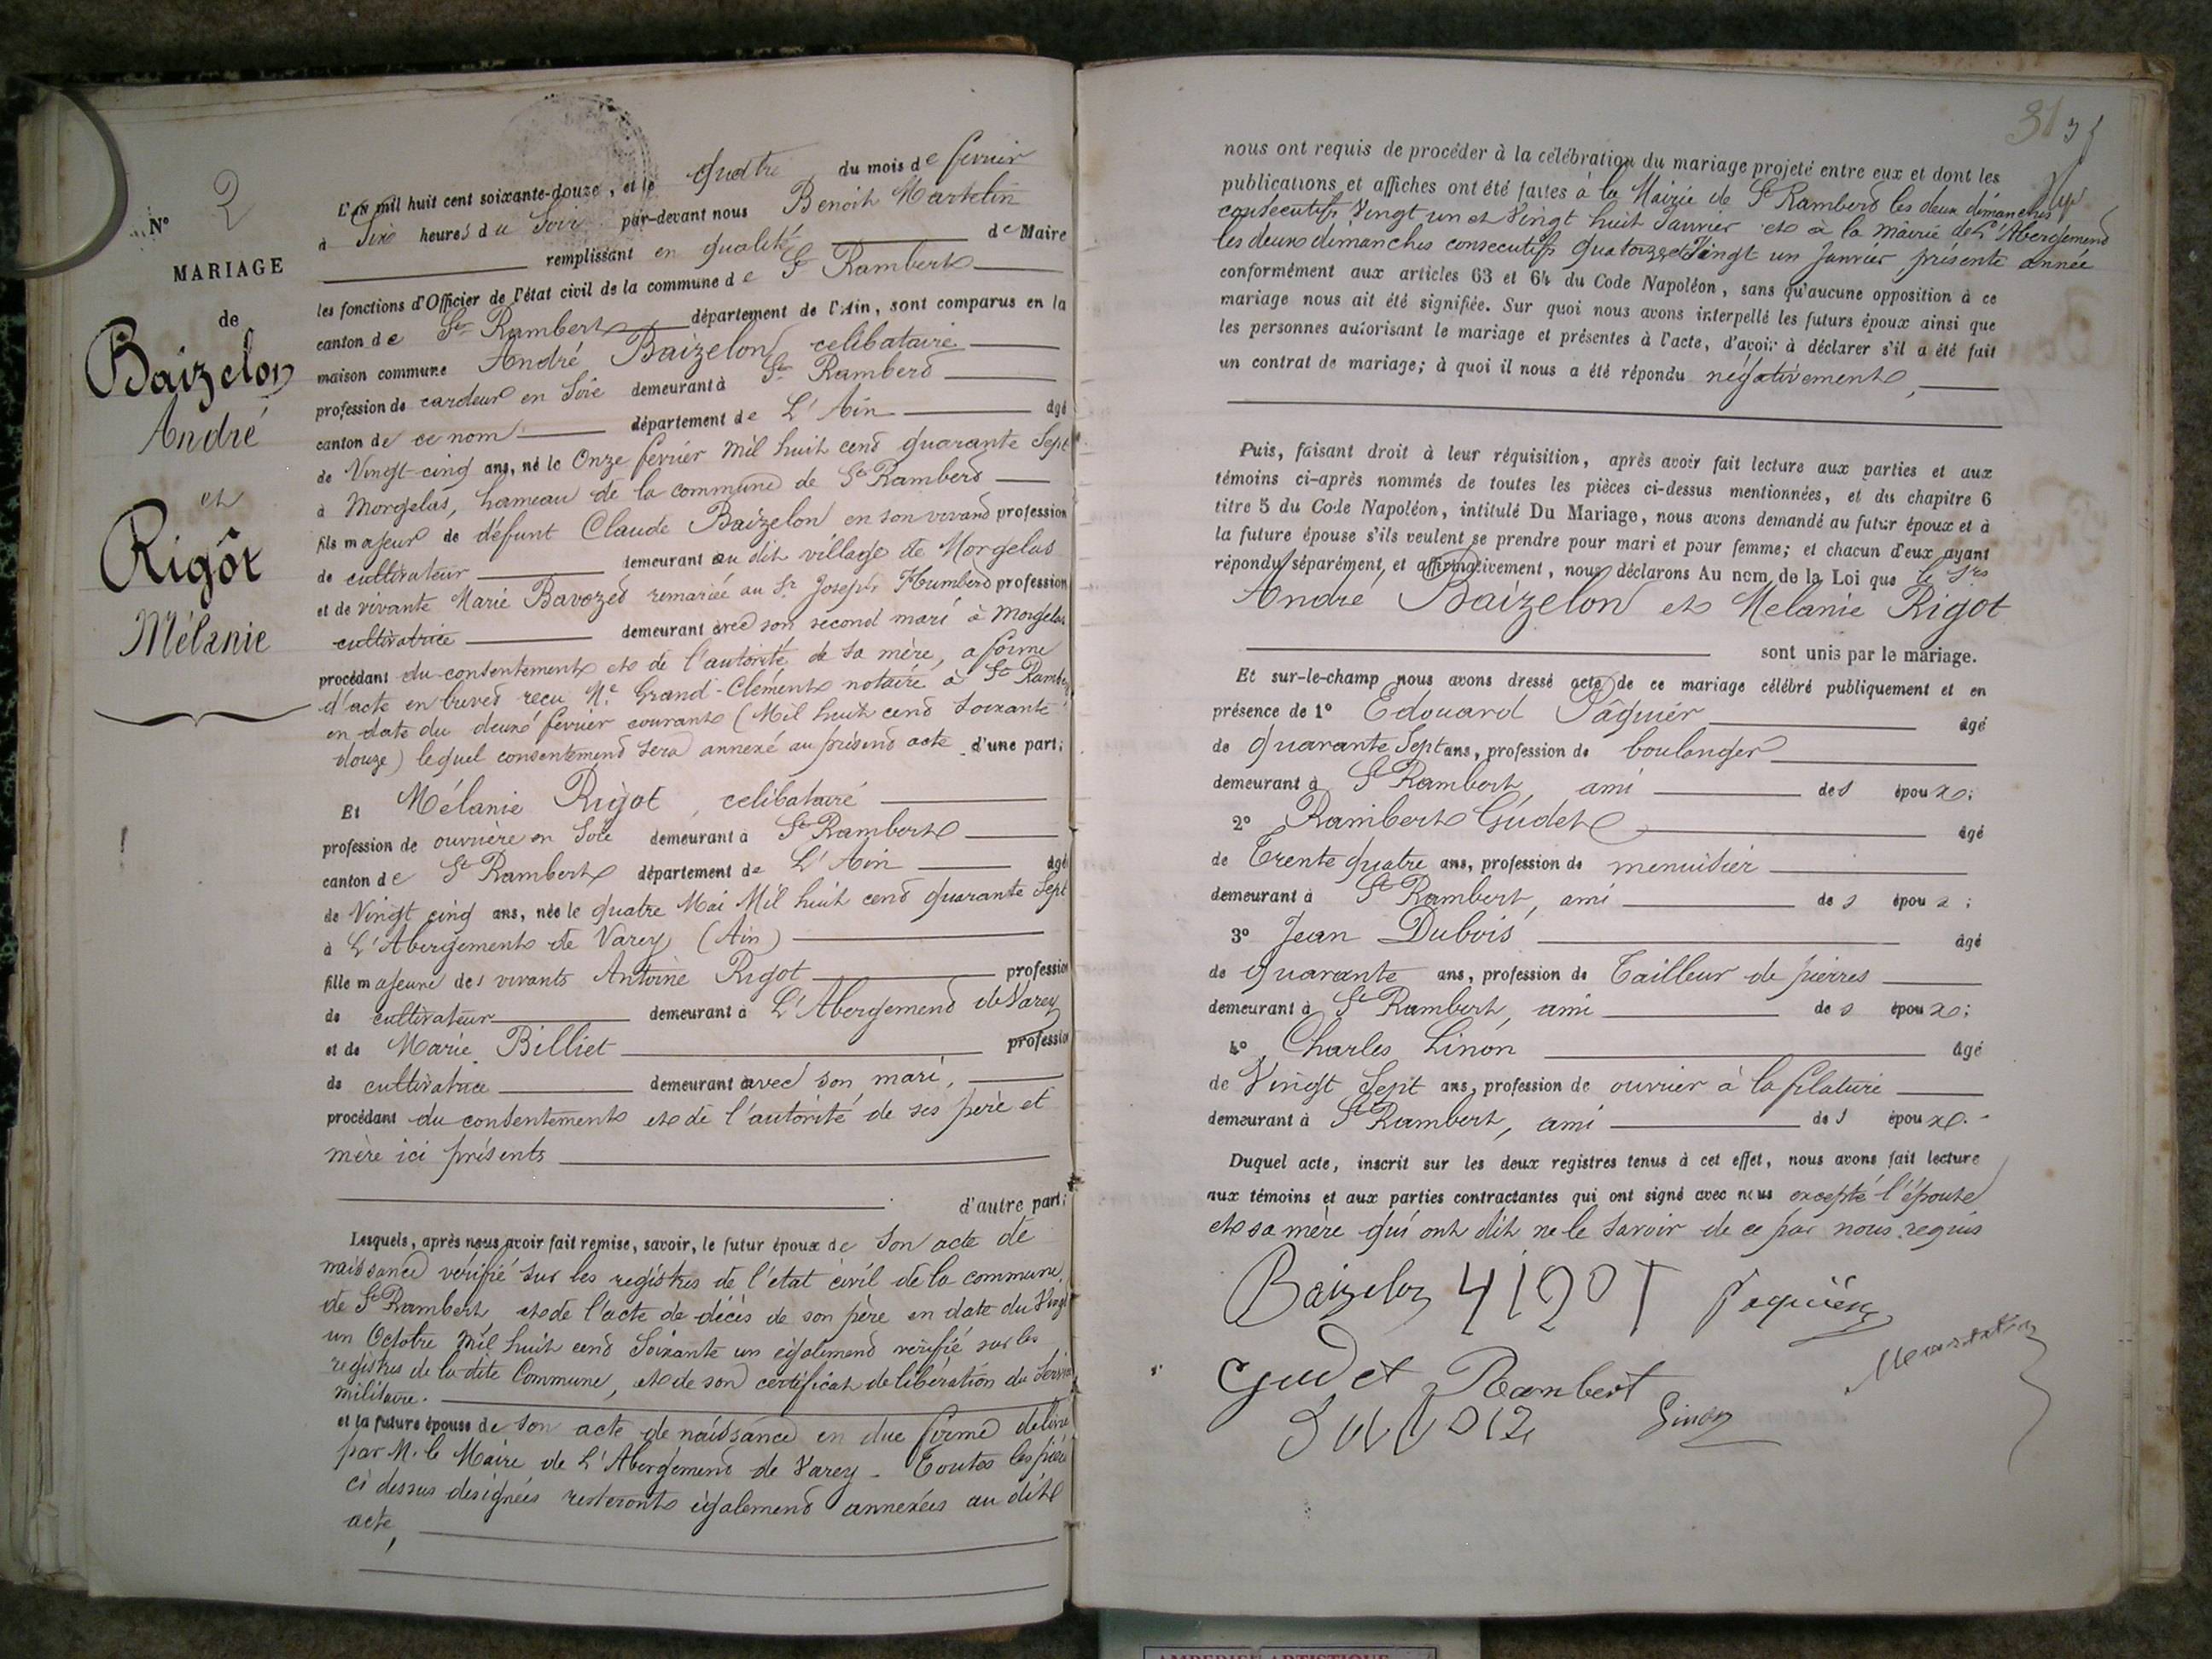 N° 2
MARIAGE
de
Baizelon
André
et
Rigôt
Mélanie
L'an mil huit cent soixante-douze, et le quatre du mois de fevrier
à Six heures du Soir par-devant nous Benoit Martelin
remplissant en qualité de Maire
les fonctions d'Officier de l'état civil de la commune de St Rambert
canton de St Rambert département de l'Ain, sont comparus en la
maison commune André Baizelon celibataire
profession de cardeur en Soie demeurant à St Rambert
canton de ce nom département de L'Ain âgé
de Vingt-cinq ans, né le Onze fevrier Mil huit cent quarante Sept
à Morgelas, hameau de la commune de St Rambert
fils majeur de défunt Claude Baizelon en son vivant profession
de cultivateur demeurant au dit village de Morgelas
et de vivante Marie Bavozet remariée au Sr Joseph Humbert profession
cultivatrice demeurant avec son second mari à Morgelas
procédant du consentement et de l'autorité de sa mère, a forme
d'acte en brevet reçu Me Grand-Clément notaire à St Rambert
en date du deux fevrier courant (Mil huit cent soixante
douze) lequel consentement sera annexé au présent acte d'une part;
Et Mélanie Rigot, celibataire
profession de ouvrière en Soie demeurant à St Rambert
canton de St Rambert département de L'Ain âgé
de Vingt cinq ans, née le quatre Mai Mil huit cent quarante Sept
à L'Abergement de Varey (Ain)
fille majeure des vivants Antoine Rigot profession
de cultivateur demeurant à L'Abergement de Varey
et de Marie Billiet profession
de cultivatrice demeurant avec son mari,
procédant du consentement et de l'autorité de ses père et
mère ici présents
d'autre part;
Lesquels, après nous avoir fait remise, savoir, le futur époux de son acte de
naissance vérifié sur les registres de l'état civil de la commune
de St Rambert, et de l'acte de décès de son père en date du Vingt
un Octobre Mil huit cent Soixante un également vérifié sur les
registres de la dite Commune, et de son certificat de libération du Service
militaire.
et la future épouse de son acte de naissance en due forme délivré
par M. le Maire de L'Abergement de Varey - Toutes les pièces
ci dessus designées resteront également annexées au dit
acte,
31
nous ont requis de procéder à la célébration du mariage projeté entre eux et dont les
publications et affiches ont été faites à la Mairie de St Rambert les deux dimanches
consecutifs Vingt un et Vingt huit Janvier et à la mairie de L'Abergement
les deux dimanches consecutifs quatorze et Vingt un Janvier, présente année
conformément aux articles 63 et 64 du Code Napoléon, sans qu'aucune opposition à ce
mariage nous ait été signifiée. Sur quoi nous avons interpellé les futurs époux ainsi que
les personnes autorisant le mariage et présentes à l'acte, d'avoir à déclarer s'il a été fait
un contrat de mariage; à quoi il nous a été répondu négativement,
Puis, faisant droit à leur réquisition, après avoir fait lecture aux parties et aux
témoins ci-après nommés de toutes les pièces ci-dessus mentionnées, et du chapitre 6
titre 5 du Code Napoléon, intitulé Du Mariage, nous avons demandé au futur époux et à
la future épouse s'ils veulent se prendre pour mari et pour femme; et chacun d'eux ayant
répondu séparément, et affirmativement, nous déclarons Au nom de la Loi que
André Baizelon et Melanie Rigot
sont unis par le mariage.
Et sur-le-champ nous avons dressé acte de ce mariage célébré publiquement et en
présence de 1° Edouard Pâquier âgé
de quarante Sept ans, profession de boulanger
demeurant à St Rambert, ami des époux;
2° Rambert Gudet âgé
de Trente quatre ans, profession de menuisier
demeurant à St Rambert, ami des époux;
3° Jean Dubois âgé
de quarante ans, profession de Tailleur de pierres
demeurant à St Rambert, ami des époux;
4° Charles Linon âgé
de Vingt Sept ans, profession de ouvrier à la filature
demeurant à St Rambert, ami des époux.
Duquel acte, inscrit sur les deux registres tenus à cet effet, nous avons fait lecture
aux témoins et aux parties contractantes qui ont signé avec nous excepté l'épouse
et sa mère qui ont dit ne le savoir de ce par nous requis
Baizelon Paquier
Gudet Rambert Martelin
Linon